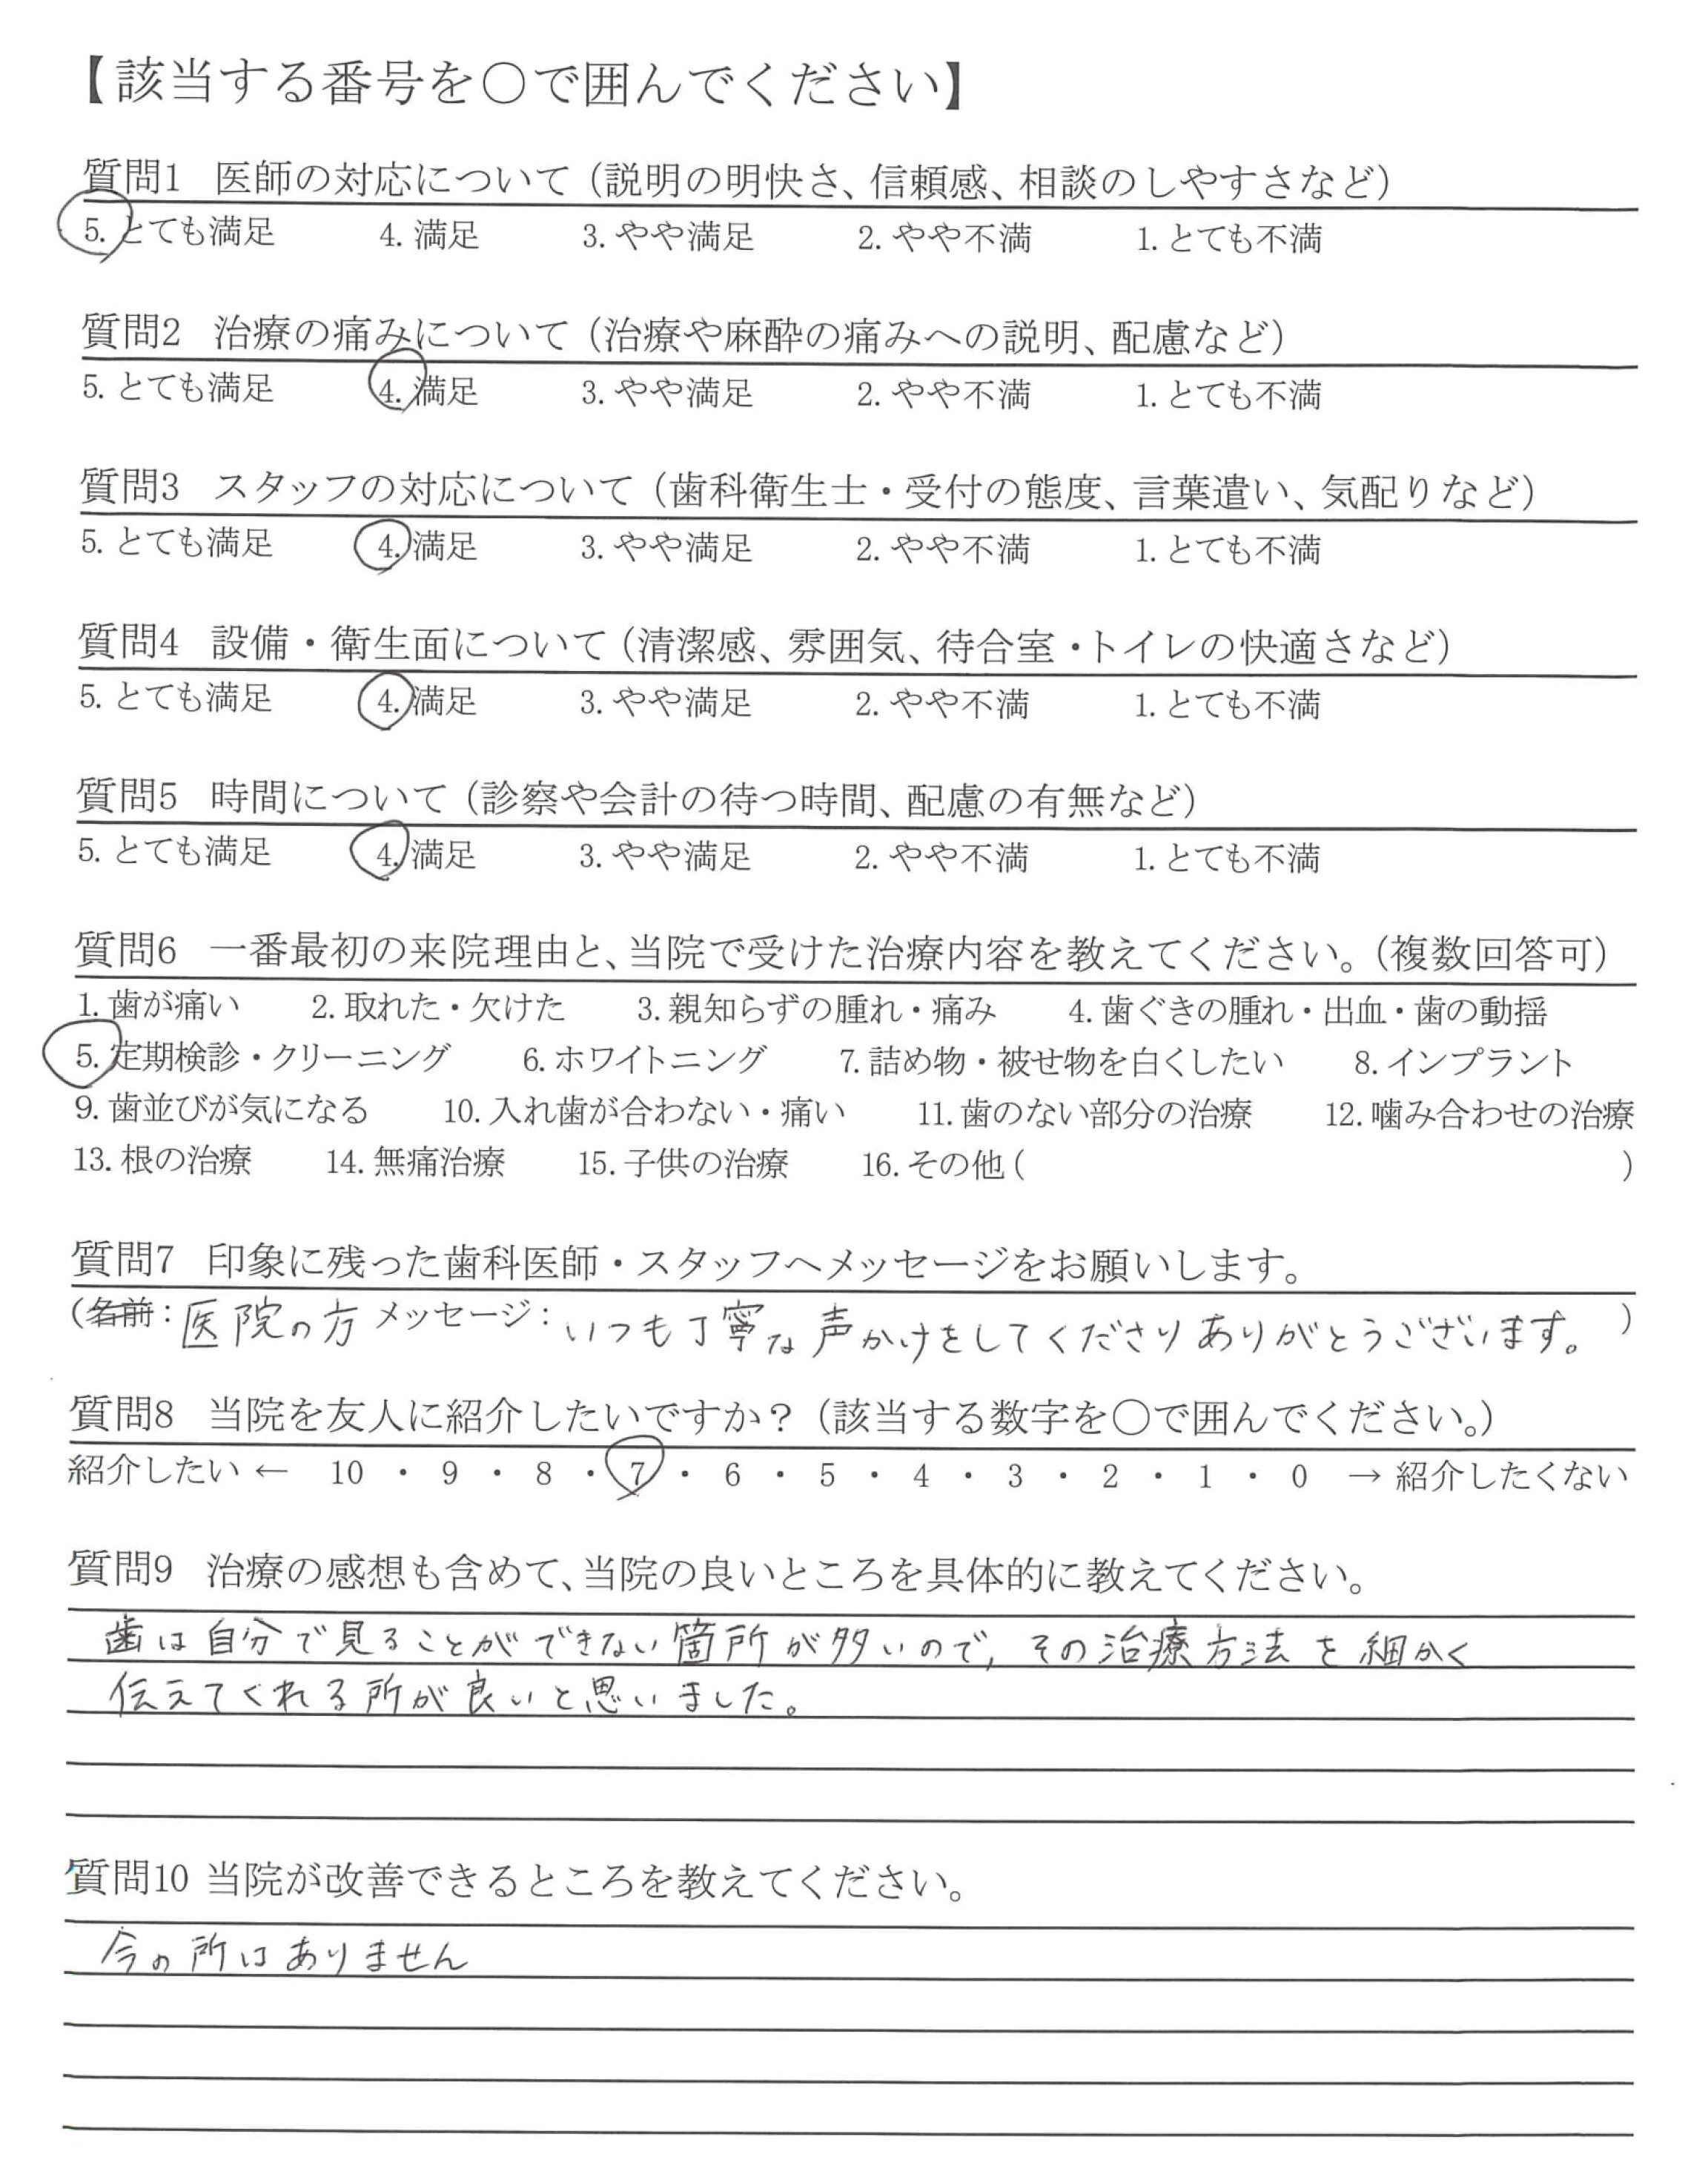 【該当する番号を〇で囲んでください】
質問1 医師の対応について（説明の明快さ、信頼感、相談のしやすさなど）
5. とても満足 4. 満足 3. やや満足 2. やや不満 1. とても不満
質問2 治療の痛みについて（治療や麻酔の痛みへの説明、配慮など）
5. とても満足 4. 満足 3. やや満足 2. やや不満 1. とても不満
質問3 スタッフの対応について（歯科衛生士・受付の態度、言葉遣い、気配りなど）
5. とても満足 4. 満足 3. やや満足 2. やや不満 1. とても不満
質問4 設備・衛生面について（清潔感、雰囲気、待合室・トイレの快適さなど）
5. とても満足 4. 満足 3. やや満足 2. やや不満 1. とても不満
質問5 時間について（診察や会計の待つ時間、配慮の有無など）
5. とても満足 4. 満足 3. やや満足 2. やや不満 1. とても不満
質問6 一番最初の来院理由と、当院で受けた治療内容を教えてください。（複数回答可）
1. 歯が痛い 2. 取れた・欠けた 3. 親知らずの腫れ・痛み 4. 歯ぐきの腫れ・出血・歯の動揺
5. 定期検診・クリーニング 6. ホワイトニング 7. 詰め物・被せ物を白くしたい 8. インプラント
9. 歯並びが気になる 10. 入れ歯が合わない・痛い 11. 歯のない部分の治療 12. 噛み合わせの治療
13. 根の治療 14. 無痛治療 15. 子供の治療 16. その他 ( )
質問7 印象に残った歯科医師・スタッフへメッセージをお願いします。
（名前：医院の方 メッセージ：いつも丁寧な声かけをしてくださりありがとうございます。）
質問8 当院を友人に紹介したいですか？（該当する数字を〇で囲んでください。）
紹介したい ← 10 ・ 9 ・ 8 ・ 7 ・ 6 ・ 5 ・ 4 ・ 3 ・ 2 ・ 1 ・ 0 → 紹介したくない
質問9 治療の感想も含めて、当院の良いところを具体的に教えてください。
歯は自分で見ることができない箇所が多いので、その治療方法を細かく
伝えてくれる所が良いと思いました。
質問10 当院が改善できるところを教えてください。
今の所はありません